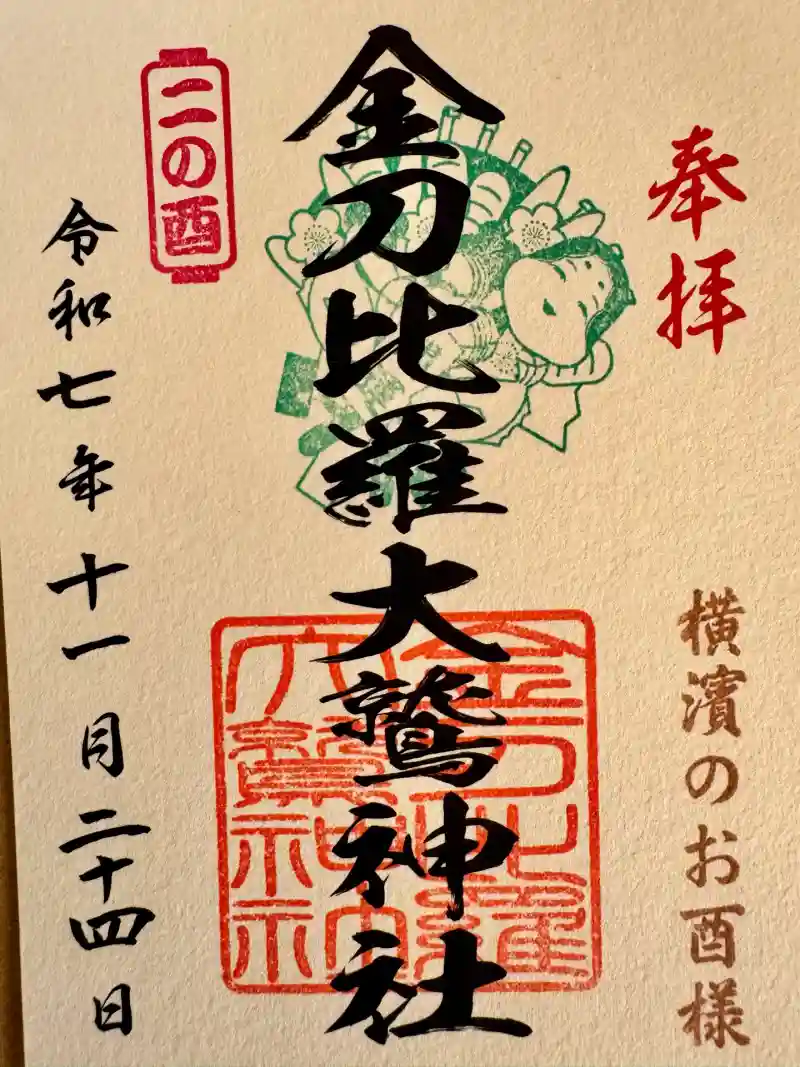 奉拝
横濱のお酉様
金刀比羅大鷲神社
金刀比羅
大鷲神社
二の酉
令和七年十一月二十四日